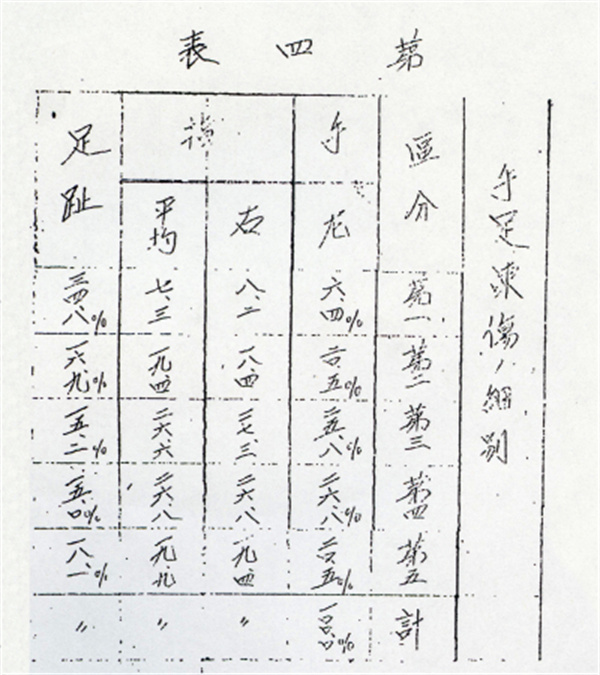 第四表
手足凍傷ノ細別
區分 第一 第二 第三 第四 第五 計
手指
左 六.四% 二〇.五% 二五.八% 二六.八% 二〇.五% 一〇〇.〇%
右 八.二 一八.四 二七.三 二六.八 一九.四 〃
平均 七.三 一九.四 二六.六 二六.八 一九.九 〃
足趾 三四.八% 一六.九% 一五.二% 一五.〇% 一八.一% 〃